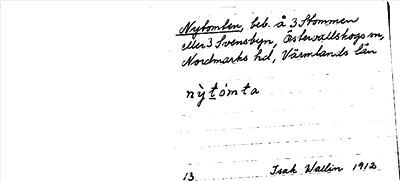 Nytomten, beb. å 3 Stommen
eller 3 Svensbyn, Östervallskogs sn,
Nordmarks hd, Värmlands län
nỳtómta
13 Isak Wallin 1912